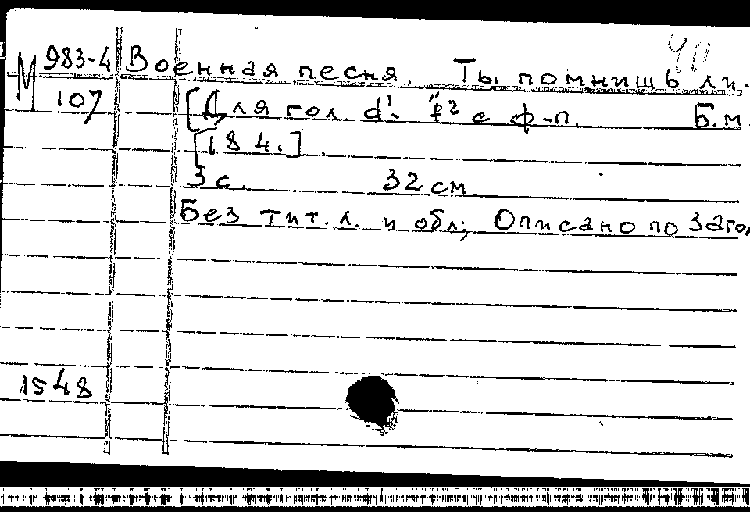 40
М 983-4 Военная песня. Ты помнишь ли,
107 [Для гол. d¹- f² с ф-п. Б.м.
[184.].
3 с. 32 см
Без тит. л. и обл; Описано по Загол
1548